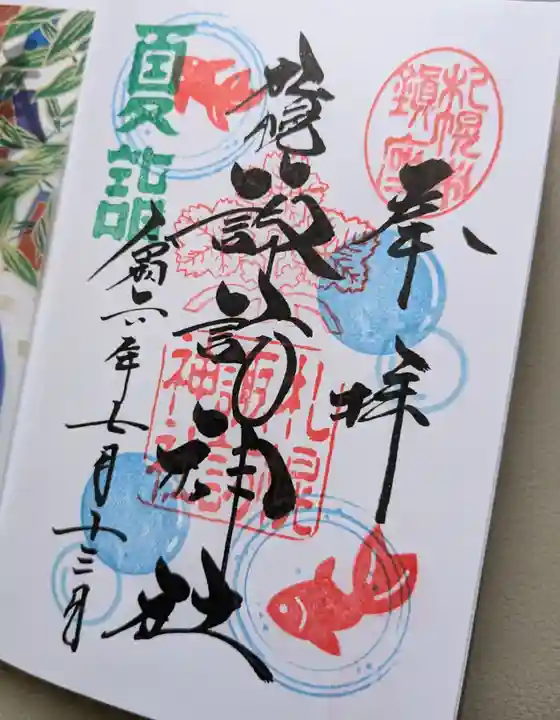 奉拝
札幌
鎮座
札幌諏訪神社
札幌
諏訪
神社
夏詣
令和六年七月十三日